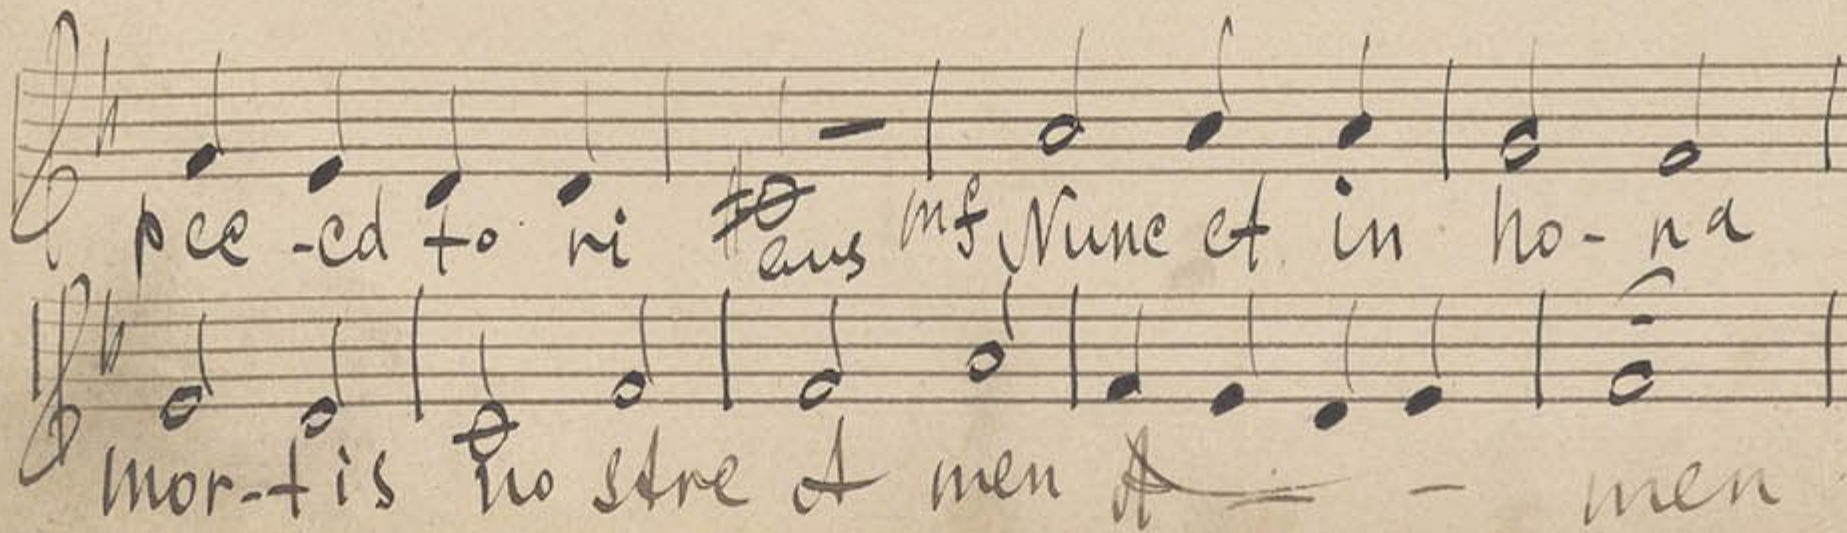 pcc -cd to ri bus mf Nunc et in ho - ra
mor - tis no stre A men A - - men